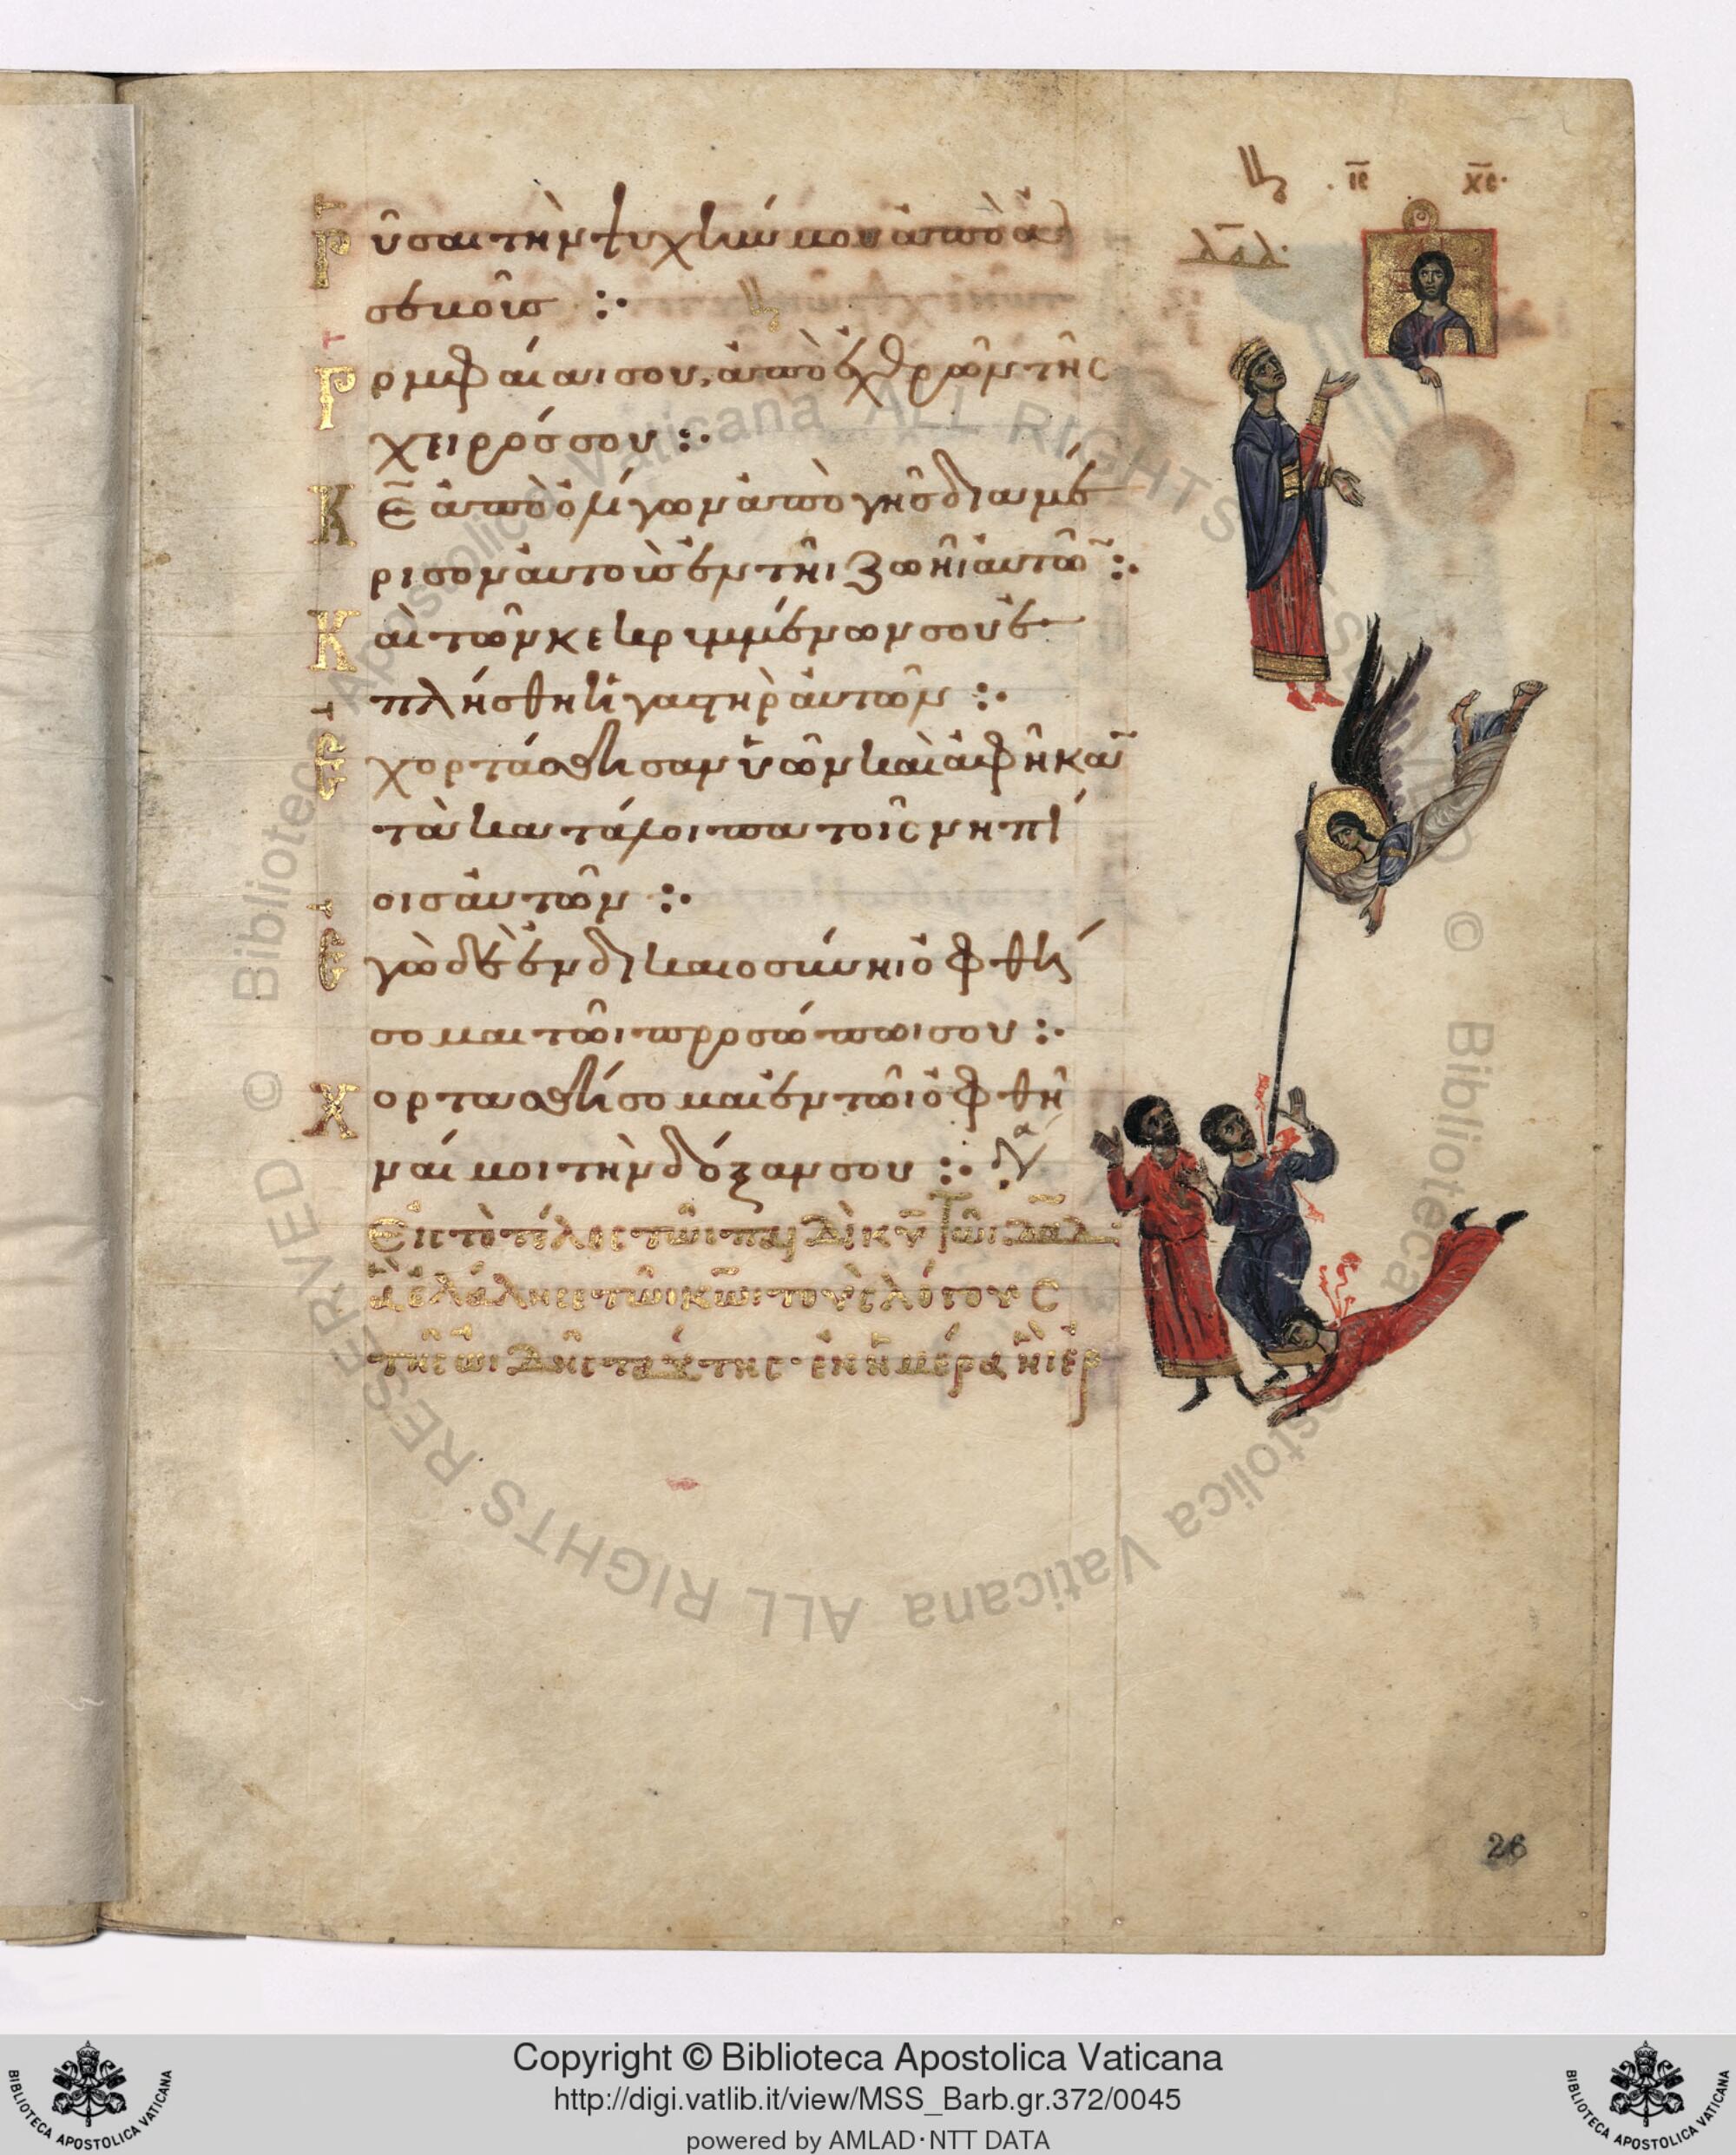 ΙC ΧC
δαδ
Ρῦσαι τὴν ψυχήν μου ἀπὸ ἀ
σεβοῦσ :·
Ρομφαίαν σου, ἀπὸ ἐχθρῶν τῆς
χειρός σου :·
Κε ἀπὸ ὀλίγων ἀπὸ γῆσ διαμέ
ρισον αὐτοὺσ ἐν τῆι ζωῆι αὐτῶ :·
Καὶ τῶν κεκρυμμένων σου ἐ
πλήσθη ἡ γαστὴρ αὐτῶν :·
Ἐχορτάσθησαν ὑῶν καὶ ἀφῆκαν
τὰ κατάλοιπα τοῖς νηπί
οισ αὐτῶν :·
Ἐγὼ δὲ ἐν δικαιοσύνηι ὀφθή
σομαι τῶι προσώπωι σου :·
Χορτασθήσομαι ἐν τῶι ὀφθῆ
ναί μοι τὴν δόξαν σου :·
Εἰς τὸ τέλος τῶι παιδὶ κυ τῶι δαδ
ἃ ἐλάλησε τῶι κωι τοὺς λόγους
τῆς ὠιδῆς ταύτης· ἐν ἡμέρα ἧι ἐρ
26
© Biblioteca Apostolica Vaticana ALL RIGHTS RESERVED
© Biblioteca Apostolica Vaticana ALL RIGHTS RESERVED
BIBLIOTECA APOSTOLICA VATICANA
Copyright © Biblioteca Apostolica Vaticana
http://digi.vatlib.it/view/MSS_Barb.gr.372/0045
powered by AMLAD·NTT DATA
BIBLIOTECA APOSTOLICA VATICANA